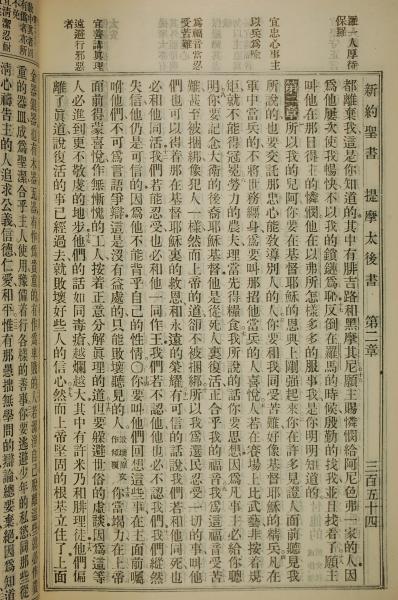 新約聖書　提摩太後書　第二章　三百五十四
羅一人厚待
保羅
都離棄我這是你知道的其中有腓吉路和黑摩其尼願主賜憐憫給阿尼色弗一家的人因
爲他屢次使我暢快不以我的鎖鏈爲恥反倒在羅馬的時候殷勤的找我並且找着了願主
叫他在那日得主的憐憫他在以弗所怎樣多多的服事我是你明明知道的
宜忠心事主
以兵爲喻
第二章　所以我的兒阿你要在基督耶穌的恩典上剛强起來你在許多見證人面前聽見我
所說的也要交託那忠心能教導別人的人你要和我同受苦難好像基督耶穌的精兵凡在
軍中當兵的不將世務經身爲要叫那招他當兵的人喜悅人若在賽場上比武藝非按着規
矩就不能得冠冕勞力的農夫理當先得糧食我所說的話你要思想因爲凡事主必給你聰
爲福音當忍
受苦難
明你要記念大衛的後裔耶穌基督他是從死人裏復活正合乎我的福音我爲這福音受苦
難甚至被捆綁像犯人一樣然而上帝的道卻不被捆綁所以我爲選民忍受一切的事叫他
們也可以得着那在基督耶穌裏的救恩和永遠的榮耀有可信的話說我們若和他同死也
必和他同活我們若能忍受也必和他一同作王我們若不認他他也必不認我們我們縱然
失信他仍是可信的因爲他不能背乎自己的性情〇你要叫他們回想這些事在主面前囑
咐他們不可爲言語爭辯這是沒有益處的只能敗壞聽見的人敗壞原文作傾覆你當竭力在上帝
宜善講眞理
遠避行邪惡
者
面前得蒙喜悅作無慚愧的工人按着正意分解眞理的道但要躲避世俗的虛談因爲這等
人必進到更不敬虔的地步他們的話如同毒瘡越爛越大其中有許米乃和腓理徒他們偏
離了眞道說復活的事已經過去就敗壞好些人的信心然而上帝堅固的根基立住了上面
重的器皿成爲聖潔合乎主人使用豫備着行各樣的善事你要逃避少年的私慾同那些
淸心禱告主的人追求公義信德仁愛和平惟有那愚拙無學問的辯論總要棄絕因爲知道